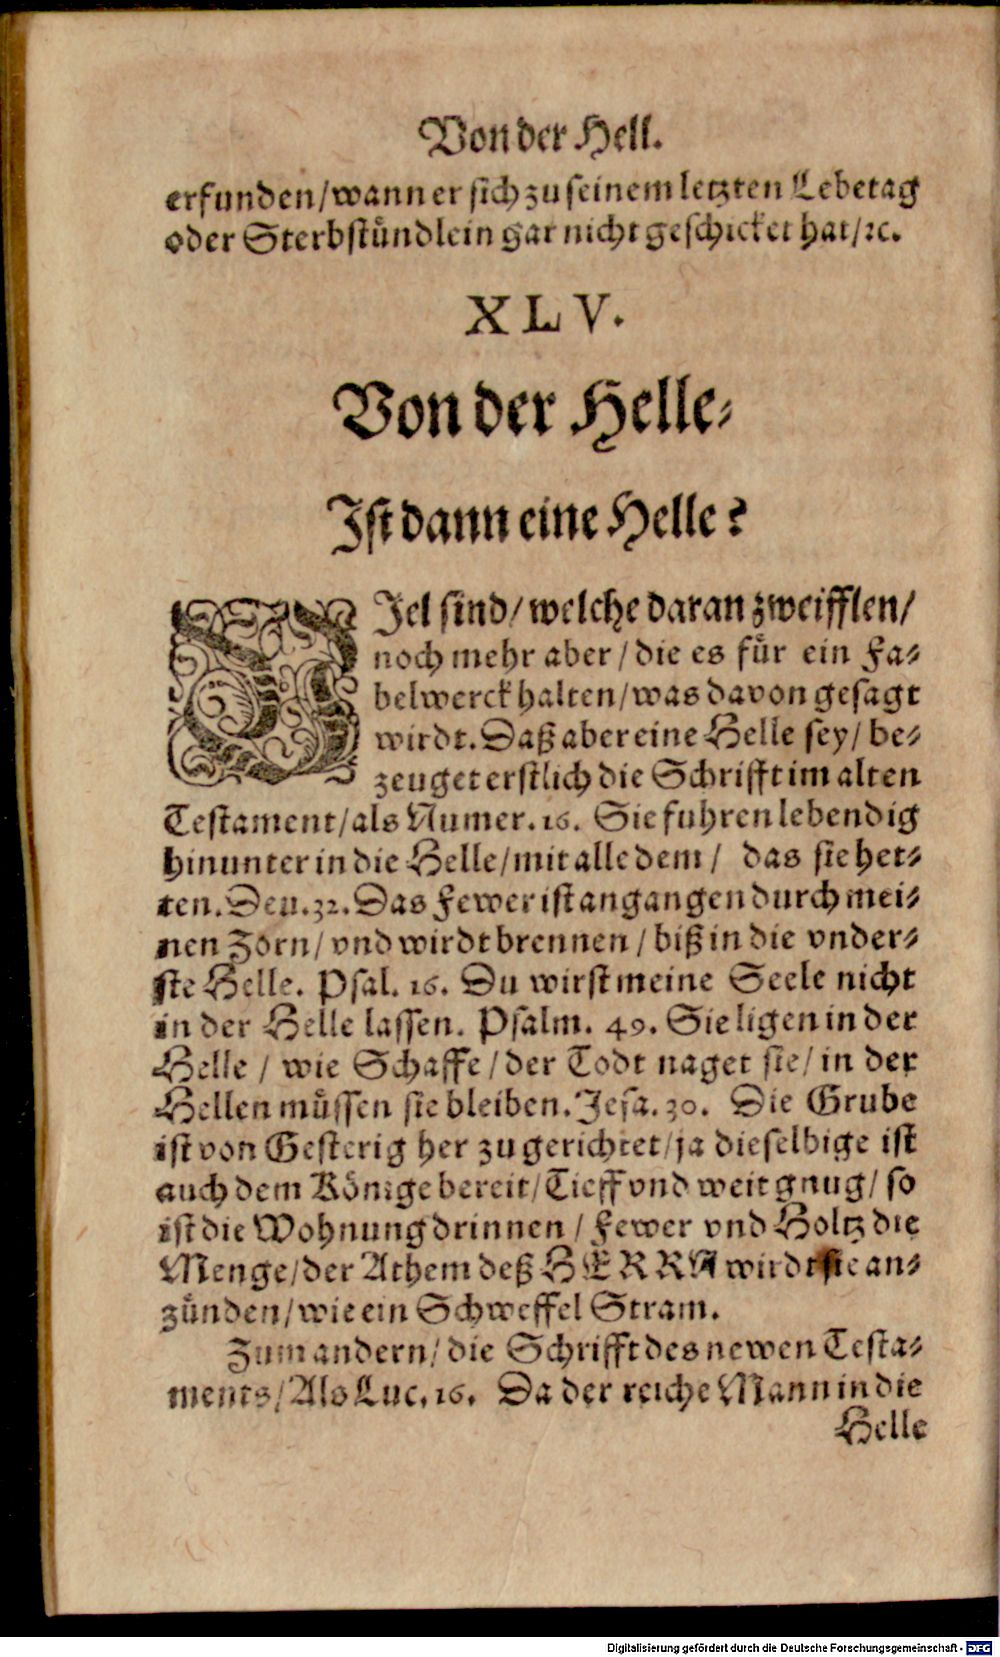 Von der Hell.
erfunden/wann er sich zu seinem letzten Lebetag
oder Sterbstündlein gar nicht geschicket hat/ꝛc.
XLV.
Von der Helle⸗
Ist dann eine Helle?
VJel sind/welche daran zweifflen/
noch mehr aber/die es für ein Fa⸗
belwerck halten/was davon gesagt
wirdt. Daß aber eine Helle sey/be⸗
zeuget erstlich die Schrifft im alten
Testament/als Numer. 16. Sie fuhren lebendig
hinunter in die Helle/mit alle dem/ das sie het⸗
ten. Deu. 32. Das Fewer ist angangen durch mei⸗
nen Zorn/vnd wirdt brennen/biß in die vnder⸗
ste Helle. Psal. 16. Du wirst meine Seele nicht
in der Helle lassen. Psalm. 49. Sie ligen in der
Helle / wie Schaffe/der Todt naget sie/in der
Hellen müssen sie bleiben. Jesa. 30. Die Grube
ist von Gesterig her zugerichtet/ja dieselbige ist
auch dem Könige bereit/Tieff vnd weit gnug/so
ist die Wohnung drinnen/Fewer vnd Holtz die
Menge/der Athem deß HERRN wirdt sie an⸗
zünden/wie ein Schweffel Stram.
Zum andern/die Schrifft des newen Testa⸗
ments/Als Luc. 16. Da der reiche Mann in die
Helle
Digitalisierung gefördert durch die Deutsche Forschungsgemeinschaft - DFG